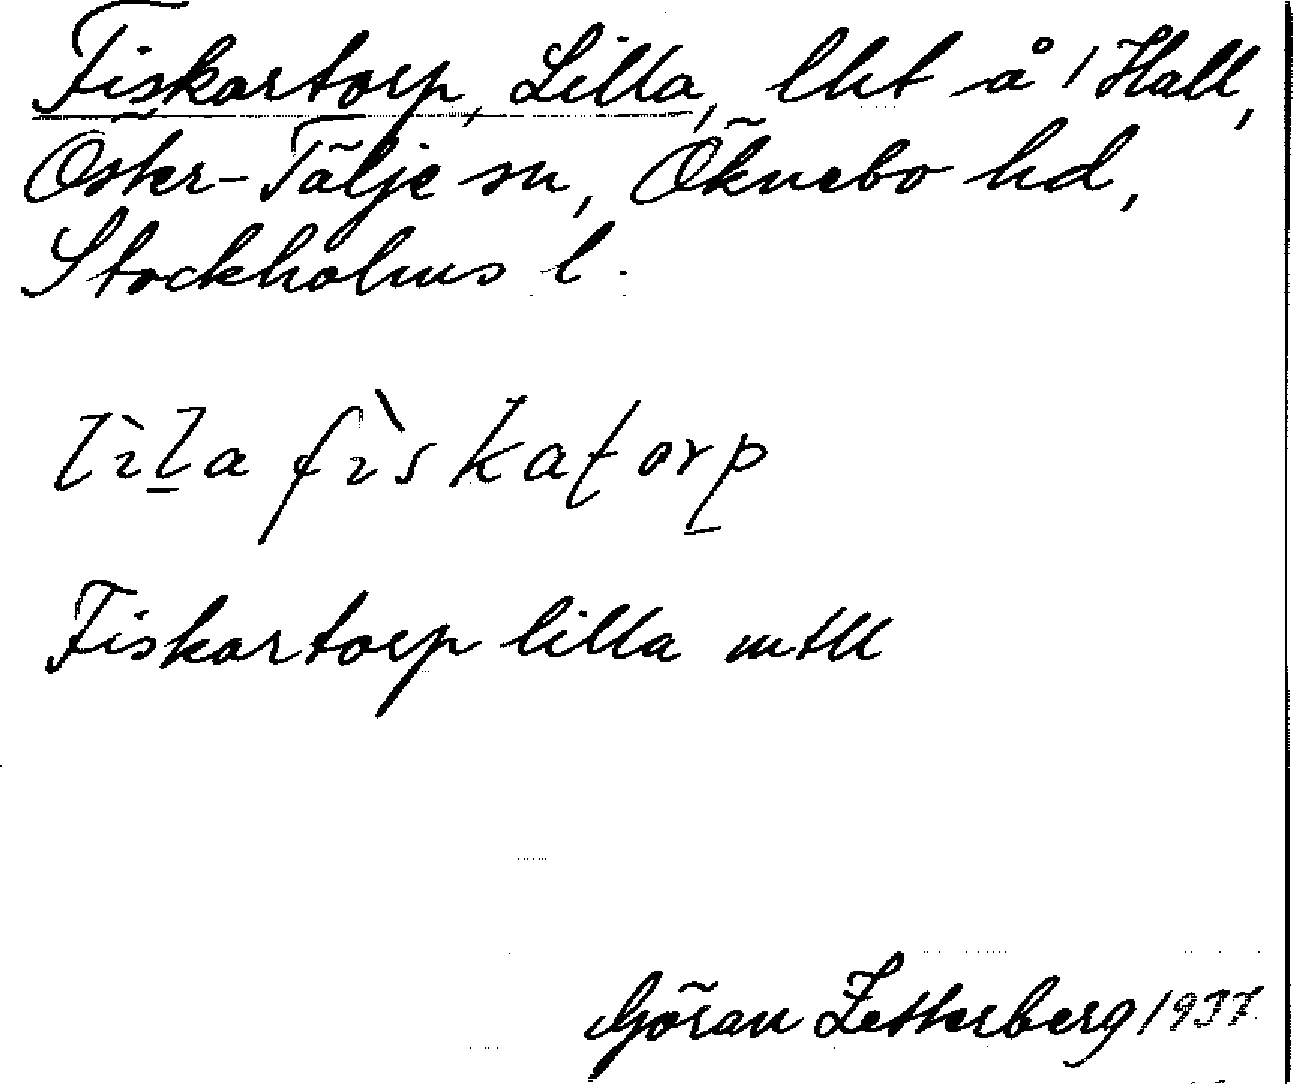 Fiskartorp, Lilla, lht å 1 Hall,
Öster-Tälje sn, Öknebo hd,
Stockholms l.
lìla fìskatorp
Fiskartorp lilla mtll
Göran Zetterberg 1937